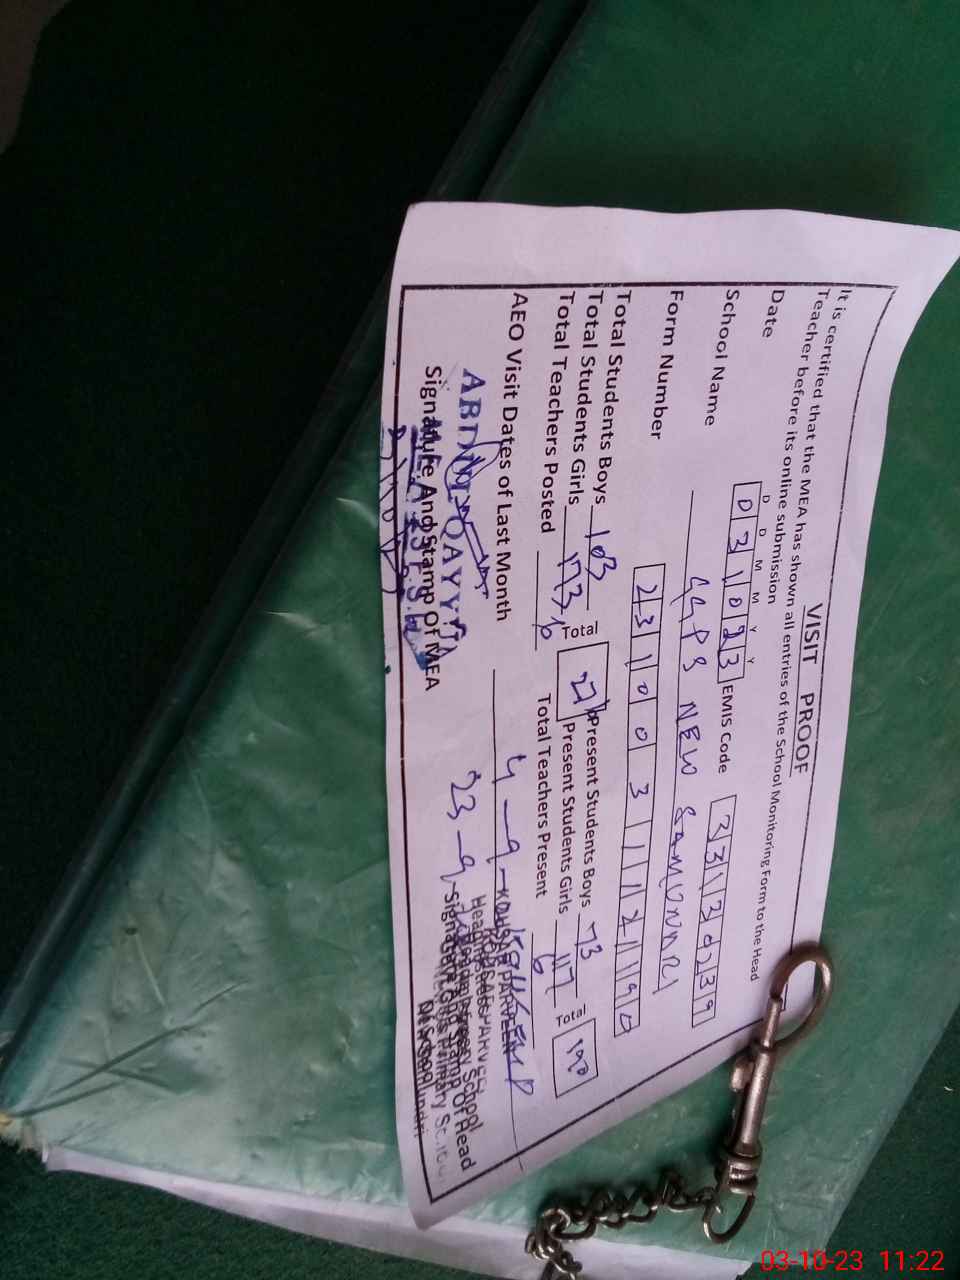 VISIT PROOF
It is certified that the MEA has shown all entries of the School Monitoring Form to the Head
Teacher before its online submission
D D M M Y Y
Date 03 10 23 EMIS Code 33130239
School Name GGPS NEW SAMUNDRI
Form Number 231003112119
Total Students Boys 103 Total Present Students Boys 73 Total
Total Students Girls 173 276 Present Students Girls 117 190
Total Teachers Posted Total Teachers Present 6
AEO Visit Dates of Last Month 4-9-
23-9-
ABDUL QAYYUM
Signature And Stamp Of MEA
Signature And Stamp Of Head
KOUSAR PARVEEN
03-10-23 11:22